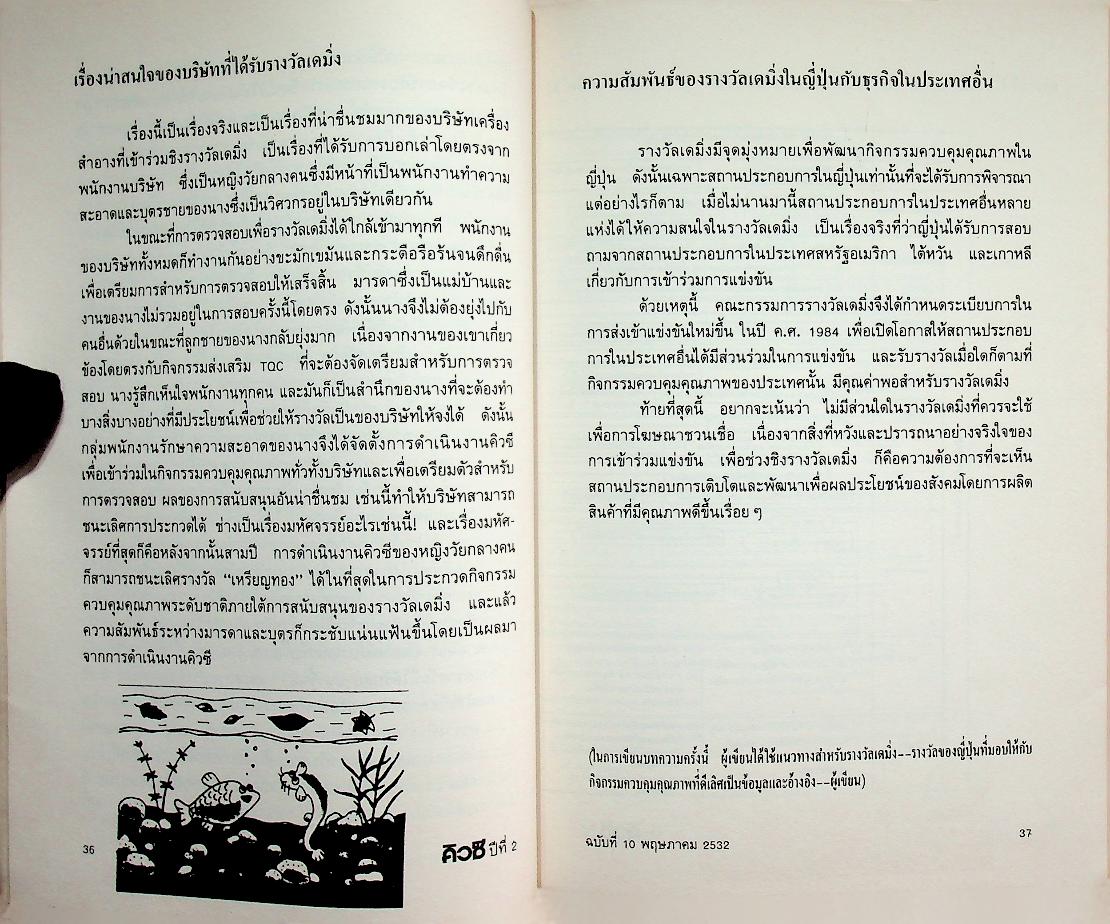 เรื่องน่าสนใจของบริษัทที่ได้รับรางวัลเดมิ่ง
เรื่องนี้เป็นเรื่องจริงและเป็นเรื่องที่น่าชื่นชมมากของบริษัทเครื่อง
สำอางที่เข้าร่วมชิงรางวัลเดมิ่ง เป็นเรื่องที่ได้รับการบอกเล่าโดยตรงจาก
พนักงานบริษัท ซึ่งเป็นหญิงวัยกลางคนซึ่งมีหน้าที่เป็นพนักงานทำความ
สะอาดและบุตรชายของนางซึ่งเป็นวิศวกรอยู่ในบริษัทเดียวกัน
ในขณะที่การตรวจสอบเพื่อรางวัลเดมิ่งได้ใกล้เข้ามาทุกที พนักงาน
ของบริษัททั้งหมดก็ทำงานกันอย่างขะมักเขม้นและกระตือรือร้นจนดึกดื่น
เพื่อเตรียมการสำหรับการตรวจสอบให้เสร็จสิ้น มารดาซึ่งเป็นแม่บ้านและ
งานของนางไม่รวมอยู่ในการสอบครั้งนี้โดยตรง ดังนั้นนางจึงไม่ต้องยุ่งไปกับ
คนอื่นด้วยในขณะที่ลูกชายของนางกลับยุ่งมาก เนื่องจากงานของเขาเกี่ยว
ข้องโดยตรงกับกิจกรรมส่งเสริม TQC ที่จะต้องจัดเตรียมสำหรับการตรวจ
สอบ นางรู้สึกเห็นใจพนักงานทุกคน และมันก็เป็นสำนึกของนางที่จะต้องทำ
บางสิ่งบางอย่างที่มีประโยชน์เพื่อช่วยให้รางวัลเป็นของบริษัทให้จงได้ ดังนั้น
กลุ่มพนักงานรักษาความสะอาดของนางจึงได้จัดตั้งการดำเนินงานคิวซี
เพื่อเข้าร่วมในกิจกรรมควบคุมคุณภาพทั่วทั้งบริษัทและเพื่อเตรียมตัวสำหรับ
การตรวจสอบ ผลของการสนับสนุนอันน่าชื่นชม เช่นนี้ทำให้บริษัทสามารถ
ชนะเลิศการประกวดได้ ช่างเป็นเรื่องมหัศจรรย์อะไรเช่นนี้! และเรื่องมหัศ-
จรรย์ที่สุดก็คือหลังจากนั้นสามปี การดำเนินงานคิวซีของหญิงวัยกลางคน
ก็สามารถชนะเลิศรางวัล “เหรียญทอง” ได้ในที่สุดในการประกวดกิจกรรม
ควบคุมคุณภาพระดับชาติภายใต้การสนับสนุนของรางวัลเดมิ่ง และแล้ว
ความสัมพันธ์ระหว่างมารดาและบุตรก็กระชับแน่นแฟ้นขึ้นโดยเป็นผลมา
จากการดำเนินงานคิวซี
36
คิวซี ปีที่ 2
ความสัมพันธ์ของรางวัลเดมิ่งในญี่ปุ่นกับธุรกิจในประเทศอื่น
รางวัลเดมิ่งมีจุดมุ่งหมายเพื่อพัฒนากิจกรรมควบคุมคุณภาพใน
ญี่ปุ่น ดังนั้นเฉพาะสถานประกอบการในญี่ปุ่นเท่านั้นที่จะได้รับการพิจารณา
แต่อย่างไรก็ตาม เมื่อไม่นานมานี้สถานประกอบการในประเทศอื่นหลาย
แห่งได้ให้ความสนใจในรางวัลเดมิ่ง เป็นเรื่องจริงที่ว่าญี่ปุ่นได้รับการสอบ
ถามจากสถานประกอบการในประเทศสหรัฐอเมริกา ไต้หวัน และเกาหลี
เกี่ยวกับการเข้าร่วมการแข่งขัน
ด้วยเหตุนี้ คณะกรรมการรางวัลเดมิ่งจึงได้กำหนดระเบียบการใน
การส่งเข้าแข่งขันใหม่ขึ้น ในปี ค.ศ. 1984 เพื่อเปิดโอกาสให้สถานประกอบ
การในประเทศอื่นได้มีส่วนร่วมในการแข่งขัน และรับรางวัลเมื่อใดก็ตามที่
กิจกรรมควบคุมคุณภาพของประเทศนั้น มีคุณค่าพอสำหรับรางวัลเดมิ่ง
ท้ายที่สุดนี้ อยากจะเน้นว่า ไม่มีส่วนใดในรางวัลเดมิ่งที่ควรจะใช้
เพื่อการโฆษณาชวนเชื่อ เนื่องจากสิ่งที่หวังและปรารถนาอย่างจริงใจของ
การเข้าร่วมแข่งขัน เพื่อช่วงชิงรางวัลเดมิ่ง ก็คือความต้องการที่จะเห็น
สถานประกอบการเติบโตและพัฒนาเพื่อผลประโยชน์ของสังคมโดยการผลิต
สินค้าที่มีคุณภาพดีขึ้นเรื่อย ๆ
(ในการเขียนบทความครั้งนี้ ผู้เขียนได้ใช้แนวทางสำหรับรางวัลเดมิ่ง--รางวัลของญี่ปุ่นที่มอบให้กับ
กิจกรรมควบคุมคุณภาพที่ดีเลิศเป็นข้อมูลและอ้างอิง--ผู้เขียน)
ฉบับที่ 10 พฤษภาคม 2532
37